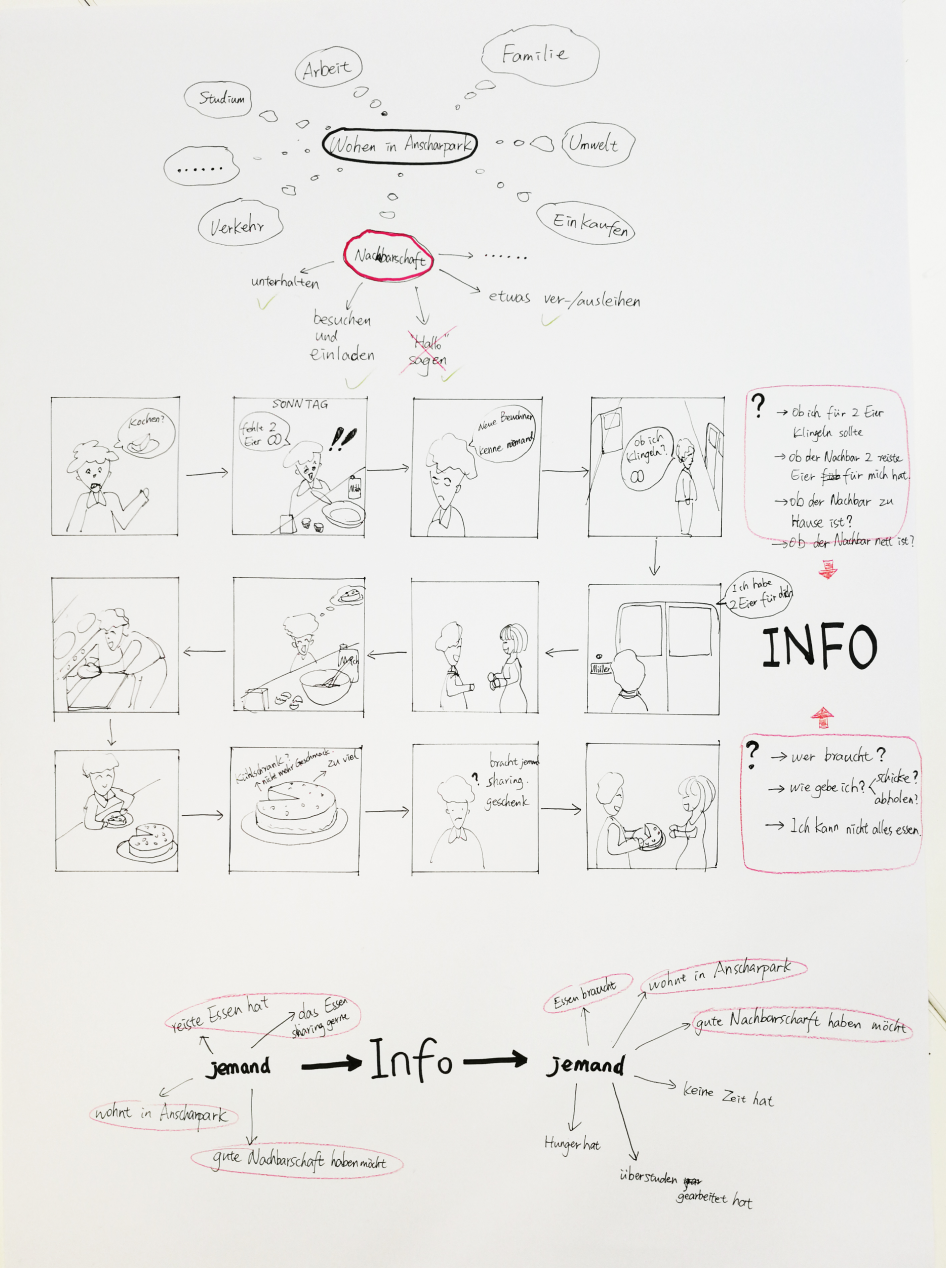 Familie
Arbeit
Studium
Wohen in Anscharpark
Umwelt
......
Verkehr
Einkaufen
Nachbarschaft
......
unterhalten
etwas ver-/ausleihen
besuchen
und
einladen
"Hallo"
sagen
Kochen?
SONNTAG
fehle 2
Eier
!!
Milch
Neue Bewohner
kenne niemand
Ob ich
klingeln?
?
→ Ob ich für 2 Eier
klingeln sollte
→ ob der Nachbar 2 reiste
Eier für mich hat.
→ ob der Nachbar zu
Hause ist?
→ ob der Nachbar nett ist?
Ich habe
2 Eier für dich
Müller
Milch
INFO
Kühlschrank?
nicht mehr Geschmack
zu viel
?
bracht jemand
sharing.
geschenk.
?
→ wer braucht?
→ wie gebe ich?
schicke?
abholen?
→ Ich kann nicht alles essen.
reiste Essen hat
das Essen
sharing gerne
jemand
Info
jemand
wohnt in Anscharpark
gute Nachbarschaft haben möcht
Essen braucht
wohnt in Anscharpark
gute Nachbarscharft haben möcht
keine Zeit hat
Hunger hat
überstuden
gearbeitet hat